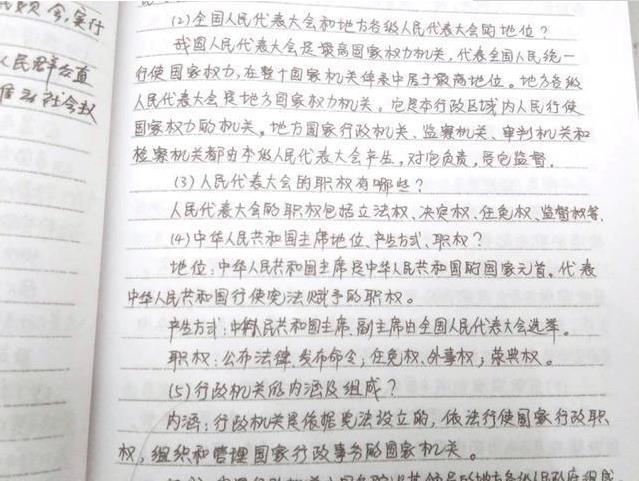 会，实行
人民群众直
社会权
(2)全国人民代表大会和地方各级人民代表大会的地位？
我国人民代表大会是最高国家权力机关，代表全国人民统一
行使国家权力，在整个国家机关体系中居于最高地位。地方各级
人民代表大会是地方国家权力机关。它是本行政区域内人民行使
国家权力的机关。地方国家行政机关、监察机关、审判机关和
检察机关都由本级人民代表大会产生，对它负责，受它监督。
(3)人民代表大会的职权有哪些？
人民代表大会的职权包括立法权、决定权、任免权、监督权等。
(4)中华人民共和国主席地位、产生方式、职权？
地位：中华人民共和国主席是中华人民共和国的国家元首。代表
中华人民共和国行使宪法赋予的职权。
产生方式：中华人民共和国主席、副主席由全国人民代表大会选举。
职权：公布法律、发布命令；任免权、外事权；荣典权。
(5)行政机关的内涵及组成？
内涵：行政机关是依据宪法设立的，依法行使国家行政职
权，组织和管理国家行政事务的国家机关。